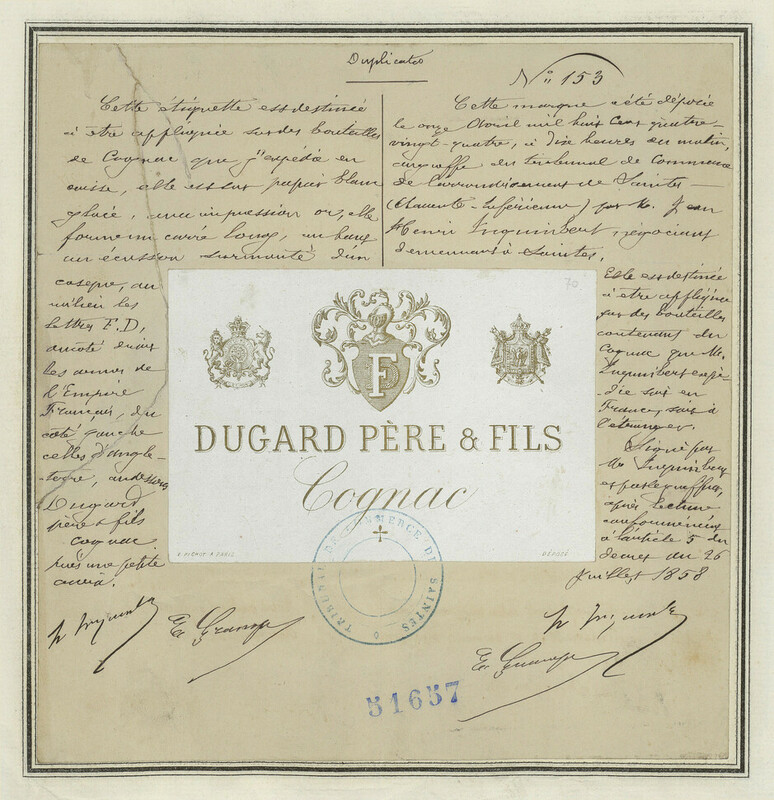 Duplicata
Cette étiquette est destinée
à être appliquée sur des bouteilles
de Cognac que j'expédie en
caisse, elle est sur papier blanc
glacé, une impression or, elle
forme un carré long, en haut
un écusson surmonté d'un
casque, au
milieu les
lettres F. D,
à côté droit
les armes de
l'Empire
Français, du
côté gauche
celles d'Angle-
terre, au dessous
Dugard
père & fils
cognac
puis une petite
croix.
H Inquimbert
E. 
No 153
Cette marque a été déposée
le onze Avril mil huit cent quatre-
vingt-quatre, à dix heures du matin,
au greffe du tribunal de Commerce
de l'arrondissement de Saintes
(Charente-Inférieure) par M. Jean
Henri Inquimbert, négociant
demeurant à Saintes,
Elle est destinée
à être appliquée
sur des bouteilles
contenant du
cognac que M.
Inquimbert expé-
die soit en
France, soit à
l'étranger.
Signé par
M. Inquimbert
et par le greffier,
après lecture
conformément
à l'article 5 du
décret du 26
Juillet 1858
H Inquimbert
E.
70
F D
DUGARD PÈRE & FILS
Cognac
A PARIS
DÉPOSÉ
TRIBUNAL DE COMMERCE DE SAINTES
51657